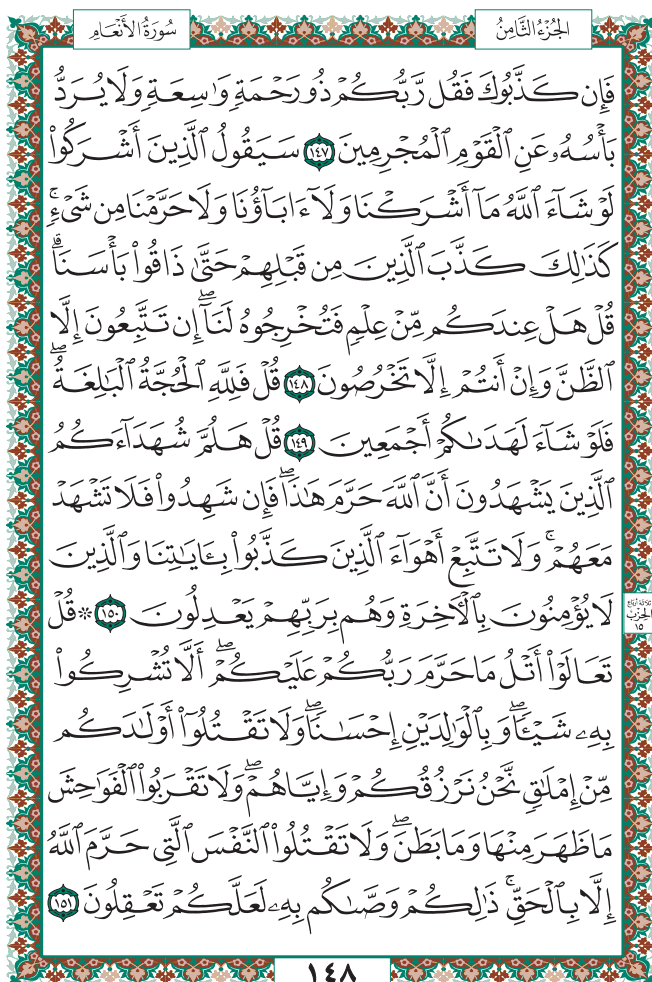 الجُزْءُ الثَّامِنُ
سُورَةُ الأَنْعَامِ
فَإِن كَذَّبُوكَ فَقُل رَّبُّكُمْ ذُو رَحْمَةٍ وَٰسِعَةٍ وَلَا يُرَدُّ
بَأْسُهُۥ عَنِ ٱلْقَوْمِ ٱلْمُجْرِمِينَ ١٤٧ سَيَقُولُ ٱلَّذِينَ أَشْرَكُوا۟
لَوْ شَآءَ ٱللَّهُ مَآ أَشْرَكْنَا وَلَآ ءَابَآؤُنَا وَلَا حَرَّمْنَا مِن شَىْءٍ ۚ
كَذَٰلِكَ كَذَّبَ ٱلَّذِينَ مِن قَبْلِهِمْ حَتَّىٰ ذَاقُوا۟ بَأْسَنَا ۗ
قُلْ هَلْ عِندَكُم مِّنْ عِلْمٍ فَتُخْرِجُوهُ لَنَآ ۖ إِن تَتَّبِعُونَ إِلَّا
ٱلظَّنَّ وَإِنْ أَنتُمْ إِلَّا تَخْرُصُونَ ١٤٨ قُلْ فَلِلَّهِ ٱلْحُجَّةُ ٱلْبَٰلِغَةُ ۖ
فَلَوْ شَآءَ لَهَدَىٰكُمْ أَجْمَعِينَ ١٤٩ قُلْ هَلُمَّ شُهَدَآءَكُمُ
ٱلَّذِينَ يَشْهَدُونَ أَنَّ ٱللَّهَ حَرَّمَ هَٰذَا ۖ فَإِن شَهِدُوا۟ فَلَا تَشْهَدْ
مَعَهُمْ ۚ وَلَا تَتَّبِعْ أَهْوَآءَ ٱلَّذِينَ كَذَّبُوا۟ بِـَٔايَٰتِنَا وَٱلَّذِينَ
لَا يُؤْمِنُونَ بِٱلْءَاخِرَةِ وَهُم بِرَبِّهِمْ يَعْدِلُونَ ١٥٠ ۞ قُلْ
تَعَالَوْا۟ أَتْلُ مَا حَرَّمَ رَبُّكُمْ عَلَيْكُمْ ۖ أَلَّا تُشْرِكُوا۟
بِهِۦ شَيْـًٔا ۖ وَبِٱلْوَٰلِدَيْنِ إِحْسَٰنًا ۖ وَلَا تَقْتُلُوٓا۟ أَوْلَٰدَكُم
مِّنْ إِمْلَٰقٍ ۖ نَّحْنُ نَرْزُقُكُمْ وَإِيَّاهُمْ ۖ وَلَا تَقْرَبُوا۟ ٱلْفَوَٰحِشَ
مَا ظَهَرَ مِنْهَا وَمَا بَطَنَ ۖ وَلَا تَقْتُلُوا۟ ٱلنَّفْسَ ٱلَّتِى حَرَّمَ ٱللَّهُ
إِلَّا بِٱلْحَقِّ ۚ ذَٰلِكُمْ وَصَّىٰكُم بِهِۦ لَعَلَّكُمْ تَعْقِلُونَ ١٥١
ثلاثة أرباع
الحزب
١٥
١٤٨